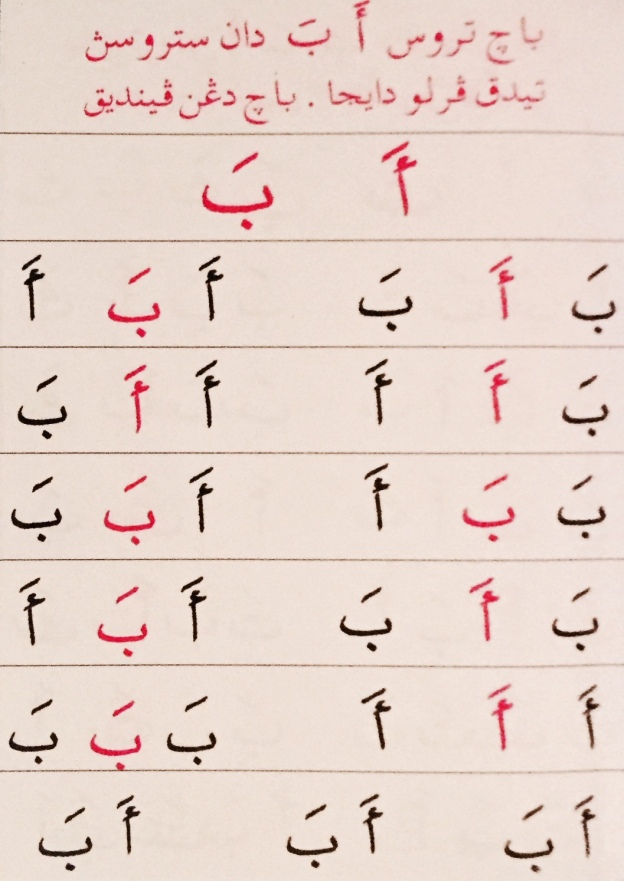 باچ تروس أَ بَ دان ستروسڽ
تيدق ڤرلو دايجا . باچ دڠن ڤينديق
أَ بَ
بَ أَ بَ أَ بَ أَ
بَ أَ أَ أَ أَ بَ
بَ بَ أَ أَ بَ بَ
بَ أَ بَ أَ بَ أَ
أَ أَ أَ بَ بَ بَ
أَ بَ أَ بَ أَ بَ